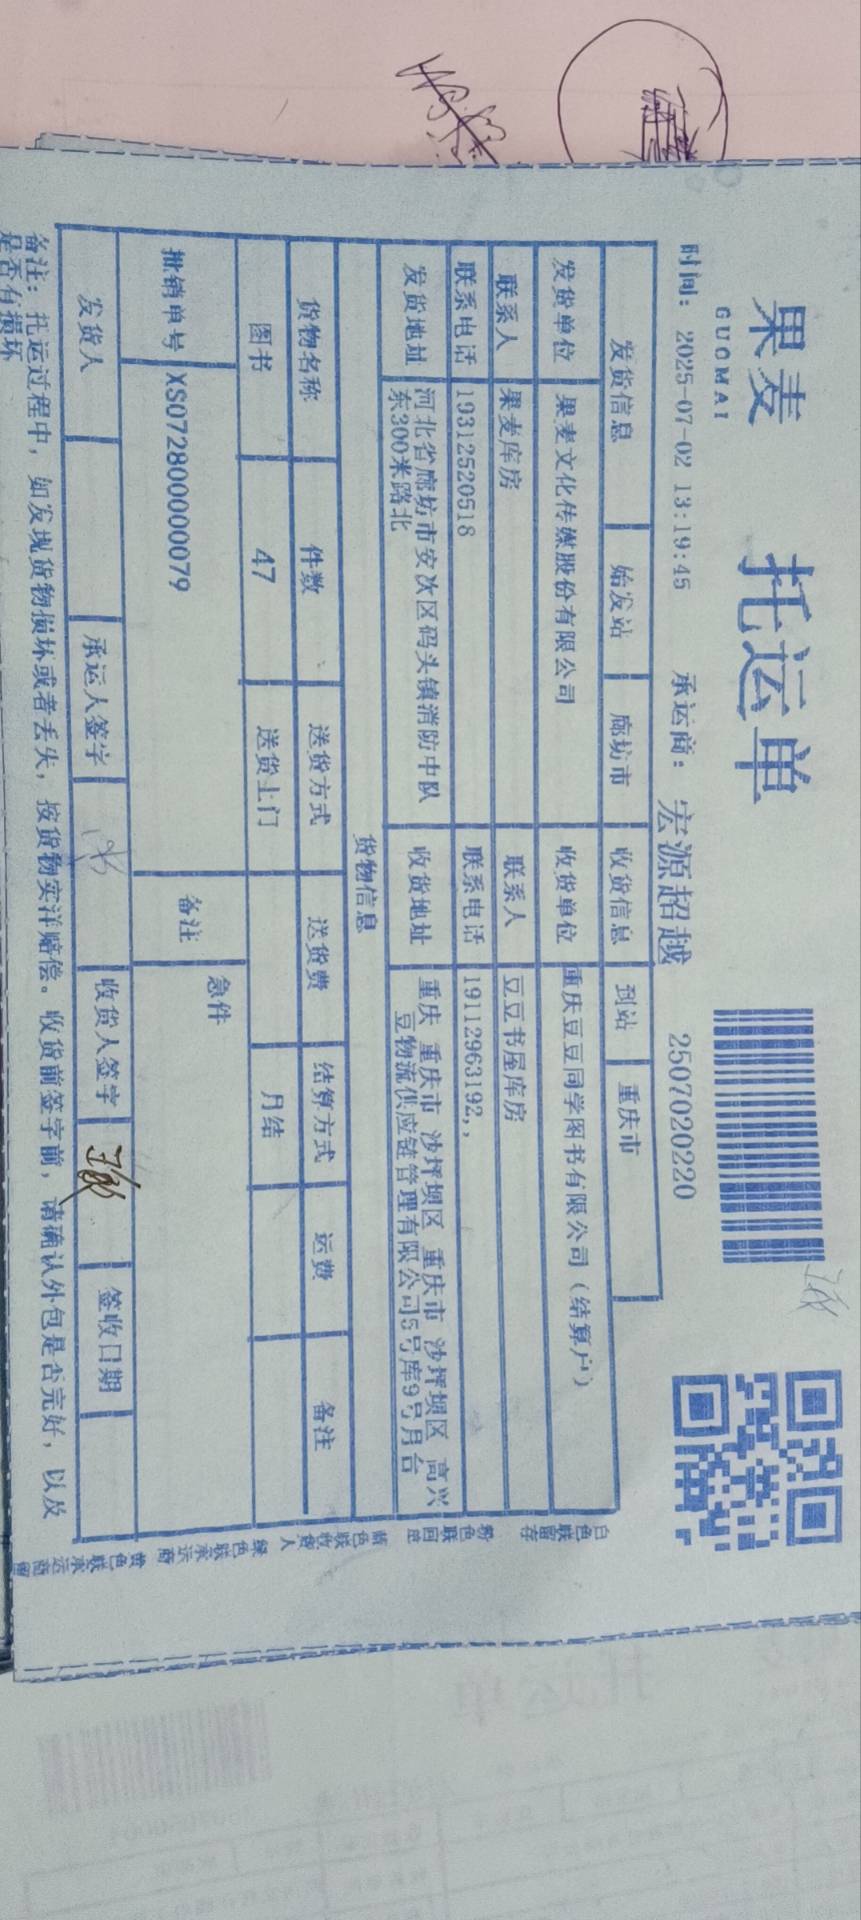 果麦
GUOMAI
托运单
时间: 2025-07-02 13:19:45 承运商: 宏源超越 2507020220
发货信息 始发站 廊坊市 收货信息 到站 重庆市
发货单位 果麦文化传媒股份有限公司 收货单位 重庆豆豆同学图书有限公司(结算户)
联系人 果麦库房 联系人 豆豆书屋库房
联系电话 19312520518 联系电话 19112963192,,
发货地址 河北省廊坊市安次区码头镇消防中队 收货地址 重庆 重庆市 沙坪坝区 重庆市 沙坪坝区 高兴
东300米路北 豆物流供应链管理有限公司5号库9号月台
货物信息
货物名称 件数 送货方式 送货费 结算方式 运费 备注
图书 47 送货上门 月结
批销单号 XS072800000079 备注 急件
发货人 承运人签字 收货人签字 签收日期
备注: 托运过程中, 如发现货物损坏或者丢失, 按货物实洋赔偿。收货前签字前, 请确认外包是否完好, 以及
是否有损坏
白色联留存 粉色联回单 蓝色联收货人 绿色联承运商 黄色联承运商留